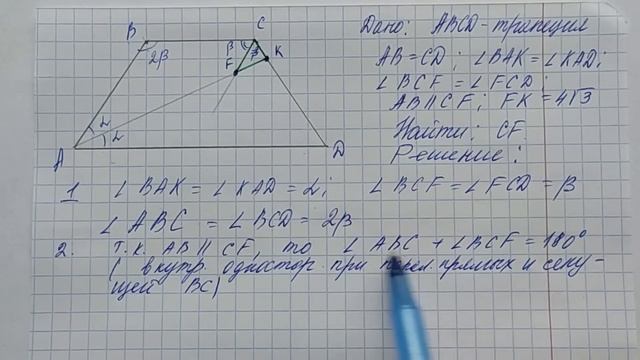 B
C
2β
β
β
K
F
A
α
α
D
Дано: ABCD - трапеция
AB = CD; ∠BAK = ∠KAD;
∠BCF = ∠FCD;
AB ∥ CF; FK = 4√3
Найти: CF.
Решение:
1 ∠BAK = ∠KAD = α; ∠BCF = ∠FCD = β
∠ABC = ∠BCD = 2β
2. т.к. AB ∥ CF, то ∠ABC + ∠BCF = 180°
(внутр. одностор. при парал. прямых и секу-
щей BC)